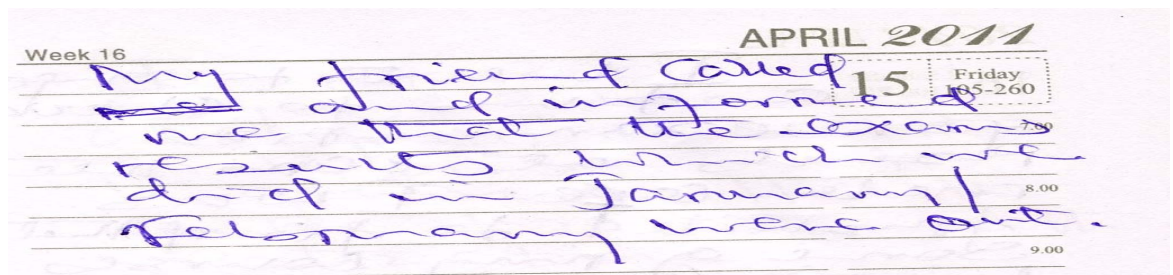 Week 16
APRIL 2011
15 Friday
105-260
My friend called
and informed
me that the exams
7.00
results which we
did in January/
8.00
February were out.
9.00